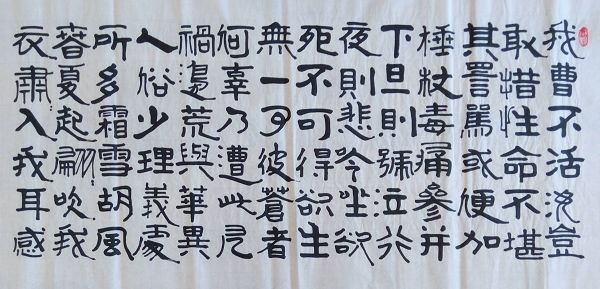 我曹不活汝豈
敢惜性命不堪
其詈罵或便加
棰杖毒痛參并
下旦則號泣行
夜則悲吟坐欲
死不可得欲生
無一可彼蒼者
何辜乃遭此厄
禍邊荒與華異
人俗少理義處
所多霜雪胡風
春夏起翩〻吹我
衣肅〻入我耳感